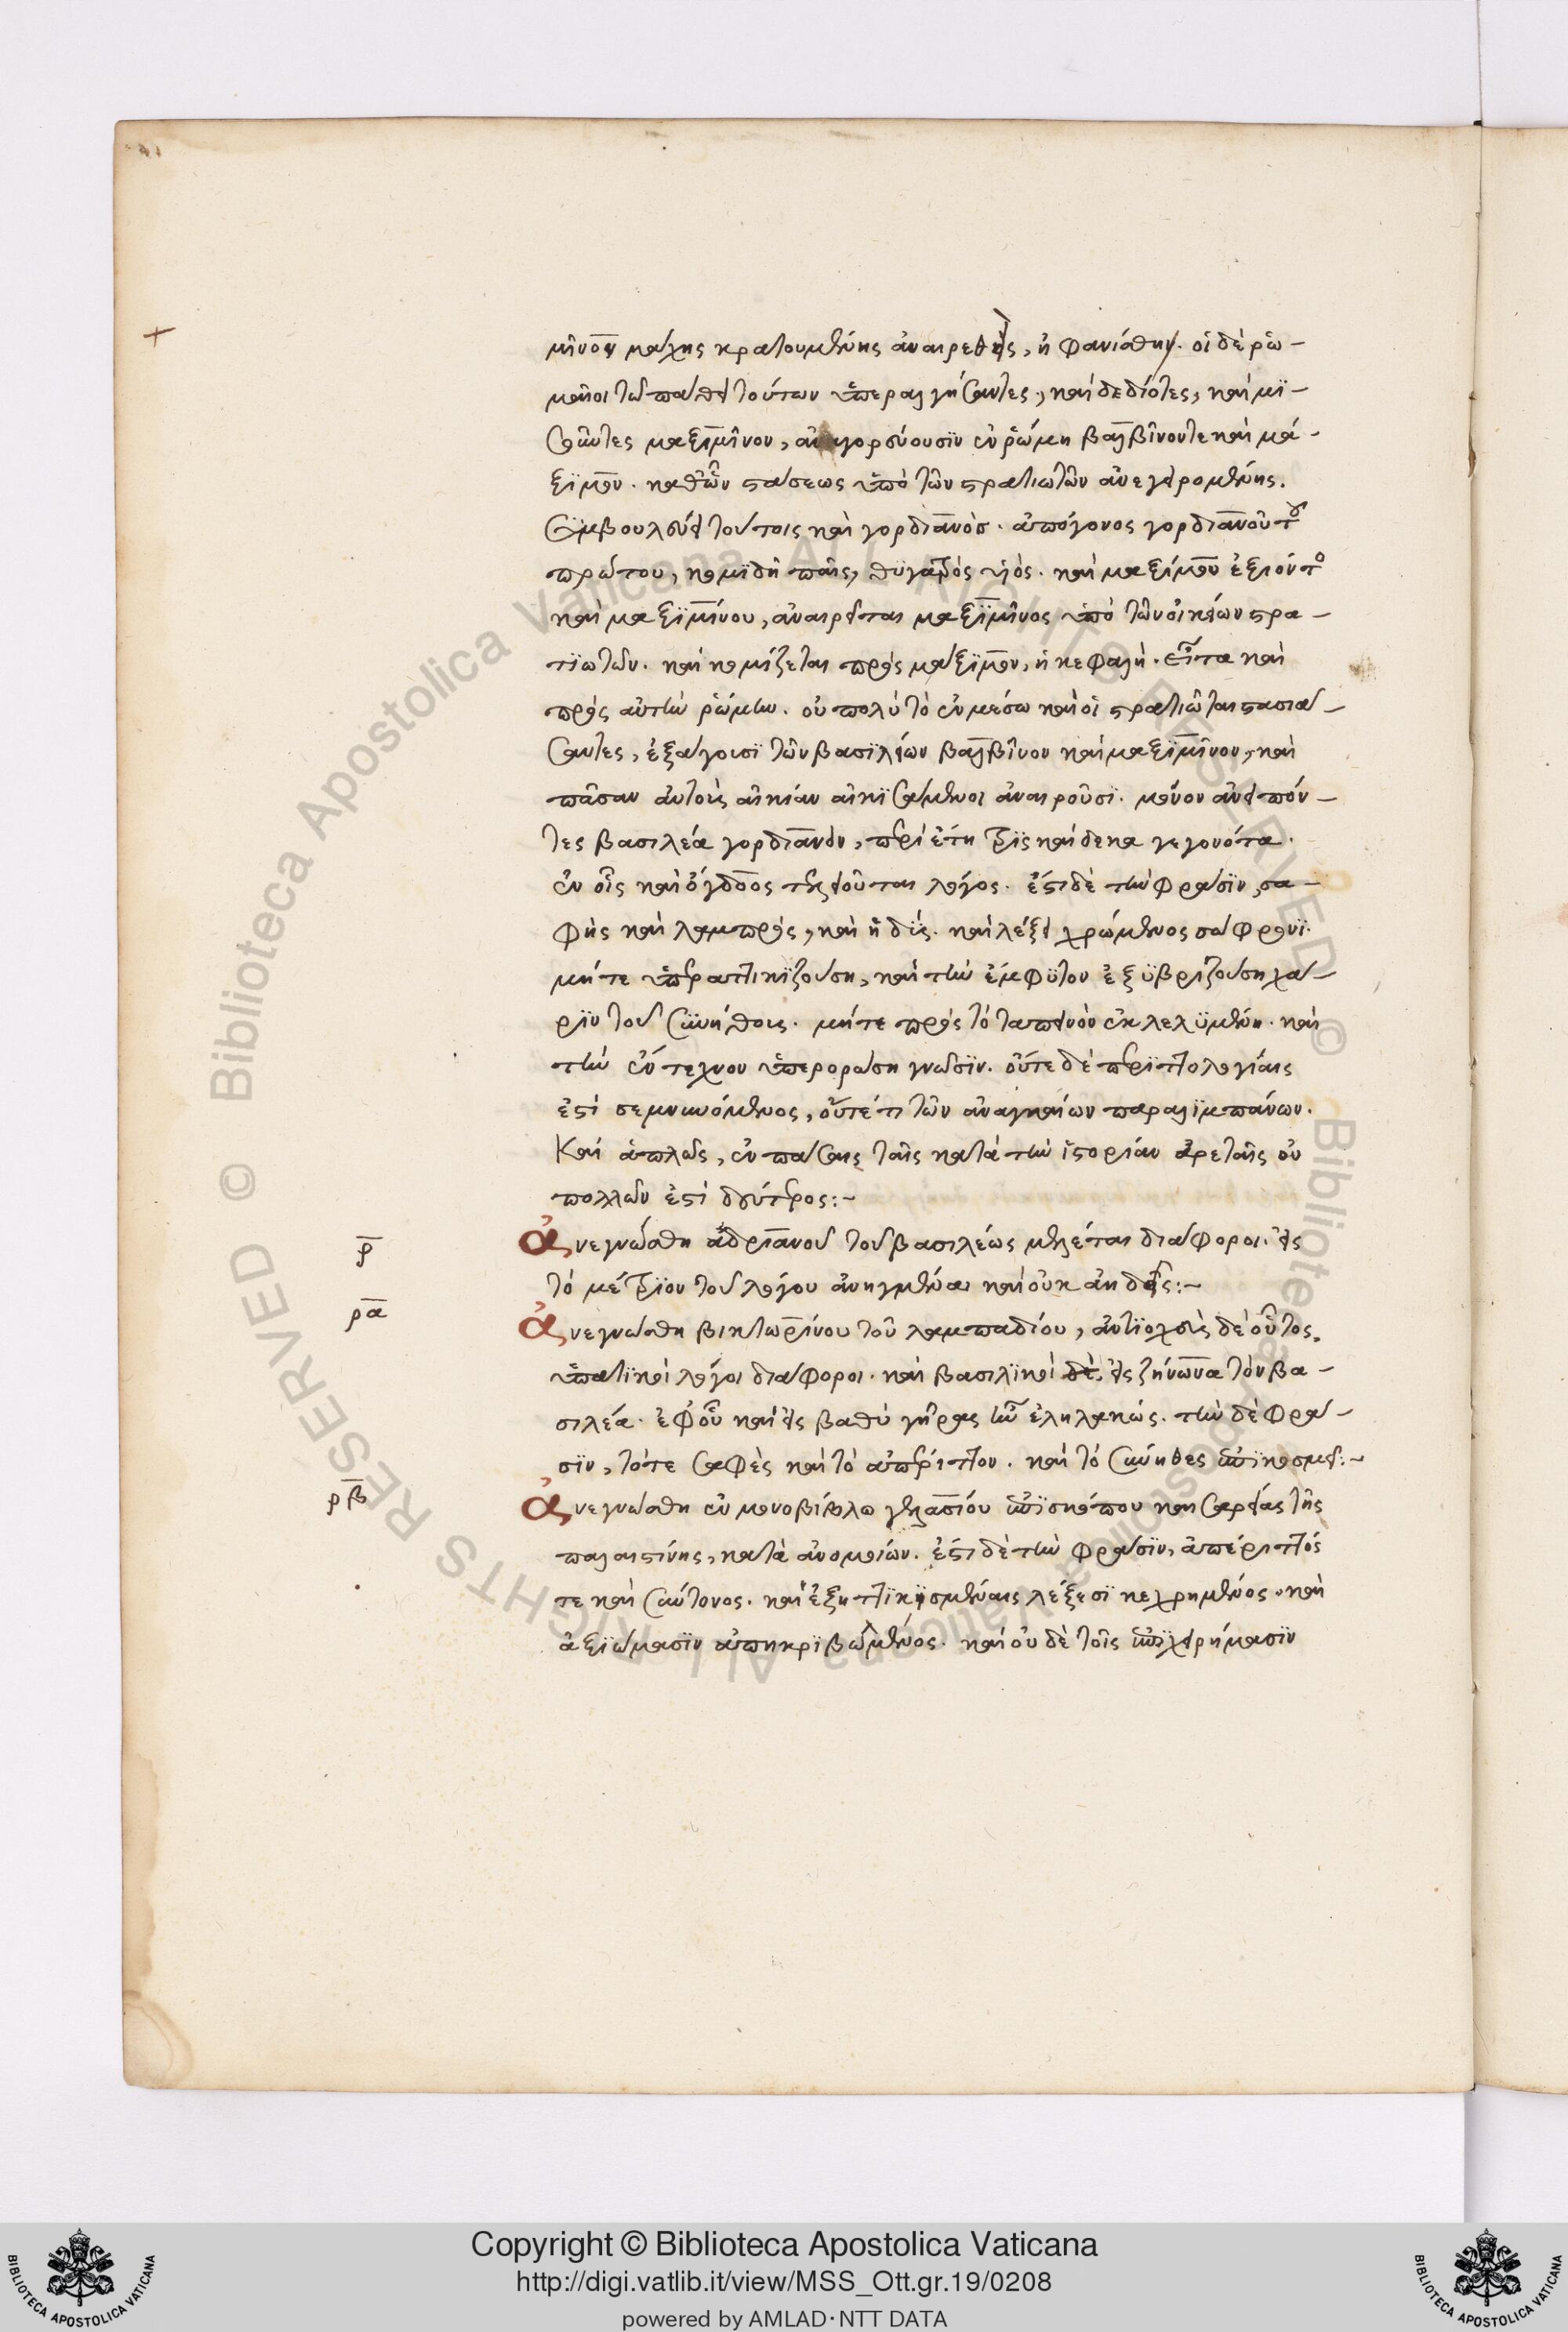 μῖνον μάχης κρατουμένης ἀναιρεθεὶς, ἠφανίσθη. οἱ δὲ ῥω-
μαῖοι τῶ πάθει τούτων ὑπεραλγήσαντες, καὶ δεδιότες, καὶ μι-
σοῦντες μαξιμῖνον, ἀναγορεύουσιν ἐν ῥώμη βαλβῖνόν τε καὶ μά-
ξιμον. καθ' ὧν στάσεως ὑπὸ τῶν στρατιωτῶν ἀνεγειρομένης.
συμβουλεύει τούτοις καὶ γορδιανὸς. ἀπόγονος γορδιανοῦ τοῦ
πρώτου, κομιδῆ παῖς, θυγατρὸς υἱός. καὶ μαξίμου ἐξιόντο
καὶ μαξιμίνου, ἀναιρεῖται μαξιμῖνος ὑπὸ τῶν οἰκείων στρα-
τιωτῶν. καὶ κομίζεται πρὸς μάξιμον, ἡ κεφαλή. εἶτα καὶ
πρὸς αὐτὴν ῥώμην. οὐ πολὺ τὸ ἐν μέσω καὶ οἱ στρατιῶται στασιά-
σαντες, ἐξάγουσι τῶν βασιλείων βαλβῖνον καὶ μαξιμῖνον, καὶ
πᾶσαν αὐτοὺς αἰκίαν αἰκισάμενοι ἀναιροῦσι. μόνον ἀνειπόν-
τες βασιλέα γορδιανόν, περὶ ἔτη τρὶς καίδεκα γεγονότα.
ἐν οἷς καὶ ὄγδοος τελειοῦται λόγος. ἔστι δὲ τὴν φράσιν, σα-
φὴς καὶ λαμπρὸς, καὶ ἡδύς. καὶ λέξει χρώμενος σώφρονι.
μήτε ὑπεραττικιζούση, καὶ τὴν ἔμφυτον ἐξυβριζούση χά-
ριν τοῦ συνήθους. μήτε πρὸς τὸ ταπεινὸν ἐκλελυμένη. καὶ
τὴν ἔντεχνον ὑπεροράση γνῶσιν. οὔτε δὲ περιττολογίαις
ἐστὶ σεμνυνόμενος, οὔτέ τι τῶν ἀναγκαίων παραλιμπάνων.
Καὶ ἁπλῶς, ἐν πάσαις ταῖς κατὰ τὴν ἱστορίαν ἀρεταῖς οὐ
πολλῶν ἐστὶ δεύτερος:-
ρ
ἀνεγνώσθη ἀδριανοῦ τοῦ βασιλέως μελέται διάφοροι. εἰς
τὸ μέτριον τοῦ λόγου ἀνηγμέναι καὶ οὐκ ἀηδεῖς:-
ρα
ἀνεγνώσθη βικτωρίνου τοῦ λαμπαδίου, ἀντιοχεὺς δὲ οὗτος.
ὑπατικοὶ λόγοι διάφοροι. καὶ βασιλικοὶ δὲ. εἰς ζήνωνα τὸν βα-
σιλέα. ἐφ' οὗ καὶ εἰς βαθὺ γῆρας ἦν ἐληλακώς. τὴν δὲ φρά-
σιν, τό τε σαφὲς καὶ τὸ ἀπέριττον. καὶ τὸ σύνηθες ἐπικοσμεῖ:-
ρβ
ἀνεγνώσθη ἐν μονοβίβλω γελασίου ἐπισκόπου καισαρείας τῆς
παλαιστίνης, κατὰ ἀνομοίων. ἔστι δὲ τὴν φράσιν, ἀπέριττός
τε καὶ σύντονος. καὶ ἐξηττικισμέναις λέξεσι κεχρημένος. καὶ
ἀξιώμασιν ἀπηκριβωμένος. καὶ οὐ δὲ τοῖς ἐπιχειρήμασιν
Copyright © Biblioteca Apostolica Vaticana
http://digi.vatlib.it/view/MSS_Ott.gr.19/0208
powered by AMLAD·NTT DATA